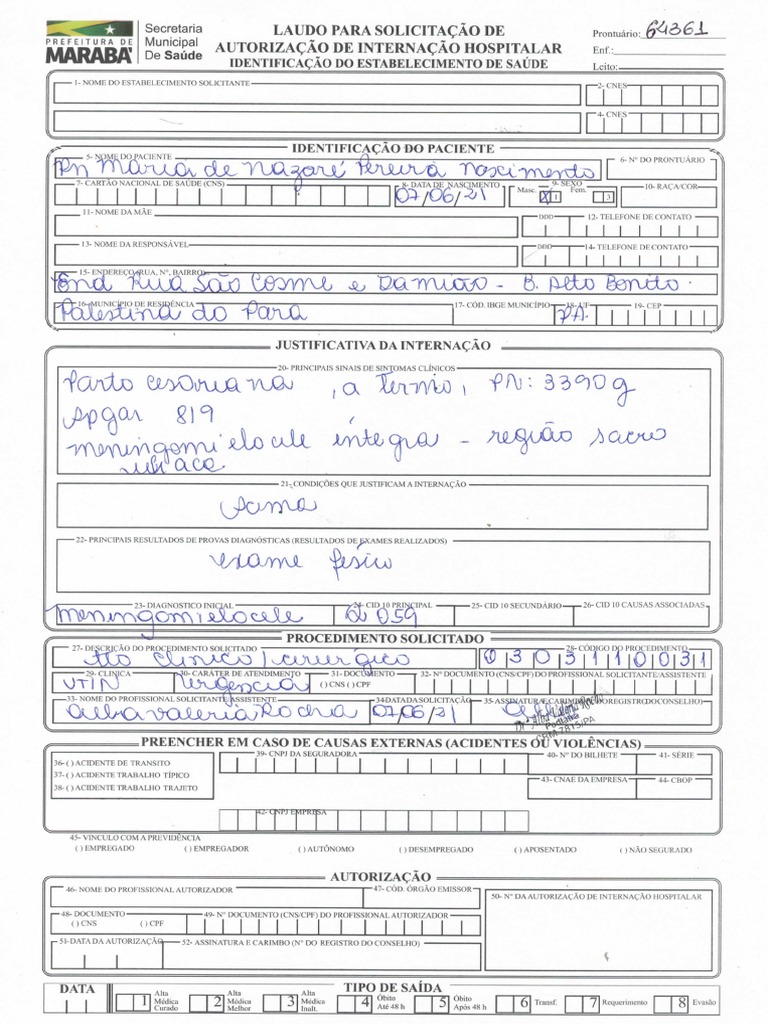 PREFEITURA DE
MARABÁ
Secretaria
Municipal
De Saúde
LAUDO PARA SOLICITAÇÃO DE
AUTORIZAÇÃO DE INTERNAÇÃO HOSPITALAR
IDENTIFICAÇÃO DO ESTABELECIMENTO DE SAÚDE
Prontuário: 64361
Enf.:
Leito:
1- NOME DO ESTABELECIMENTO SOLICITANTE
2- CNES
4- CNES
IDENTIFICAÇÃO DO PACIENTE
5- NOME DO PACIENTE
6- Nº DO PRONTUÁRIO
Rn Maria de Nazaré Pereira Nascimento
7- CARTÃO NACIONAL DE SAÚDE (CNS)
8- DATA DE NASCIMENTO
07/06/21
9- SEXO
Masc. X 1 Fem. 3
10- RAÇA/COR
11- NOME DA MÃE
DDD
12- TELEFONE DE CONTATO
13- NOME DA RESPONSÁVEL
DDD
14- TELEFONE DE CONTATO
15- ENDEREÇO (RUA, Nº, BAIRRO)
End Rua São Cosme e Damião - B. Alto Bonito.
16- MUNICÍPIO DE RESIDÊNCIA
17- CÓD. IBGE MUNICÍPIO
18- UF
19- CEP
Palestina do Para
PA.
JUSTIFICATIVA DA INTERNAÇÃO
20- PRINCIPAIS SINAIS DE SINTOMAS CLÍNICOS
Parto cesariana , a Termo, PN: 3390g
Apgar 8/9
meningomielocele integra - região sacro
21- CONDIÇÕES QUE JUSTIFICAM A INTERNAÇÃO
Acima
22- PRINCIPAIS RESULTADOS DE PROVAS DIAGNÓSTICAS (RESULTADOS DE EXAMES REALIZADOS)
exame físico
23- DIAGNOSTICO INICIAL
24- CID 10 PRINCIPAL
25- CID 10 SECUNDÁRIO
26- CID 10 CAUSAS ASSOCIADAS
Meningomielocele
Q 059
PROCEDIMENTO SOLICITADO
27- DESCRIÇÃO DO PROCEDIMENTO SOLICITADO
28- CÓDIGO DO PROCEDIMENTO
Tto Clinico / cirurgico
0303110031
29- CLINICA
30- CARÁTER DE ATENDIMENTO
31- DOCUMENTO
32- Nº DOCUMENTO (CNS/CPF) DO PROFISSIONAL SOLICITANTE/ASSISTENTE
UTIN
Urgência
( ) CNS ( ) CPF
33- NOME DO PROFISSIONAL SOLICITANTE/ASSISTENTE
34-DATA DA SOLICITAÇÃO
35- ASSINATURA E CARIMBO (Nº DO REGISTRO DO CONSELHO)
Valeria Rocha
07/06/21
CRM 7815/PA
PREENCHER EM CASO DE CAUSAS EXTERNAS (ACIDENTES OU VIOLÊNCIAS)
36- ( ) ACIDENTE DE TRANSITO
37- ( ) ACIDENTE TRABALHO TÍPICO
38- ( ) ACIDENTE TRABALHO TRAJETO
39- CNPJ DA SEGURADORA
40- Nº DO BILHETE
41- SÉRIE
42- CNPJ EMPRESA
43- CNAE DA EMPRESA
44- CBOP
45- VINCULO COM A PREVIDÊNCIA
( ) EMPREGADO
( ) EMPREGADOR
( ) AUTÔNOMO
( ) DESEMPREGADO
( ) APOSENTADO
( ) NÃO SEGURADO
AUTORIZAÇÃO
46- NOME DO PROFISSIONAL AUTORIZADOR
47- CÓD. ÓRGÃO EMISSOR
48- DOCUMENTO
( ) CNS ( ) CPF
49- Nº DOCUMENTO (CNS/CPF) DO PROFISSIONAL AUTORIZADOR
50- Nº DA AUTORIZAÇÃO DE INTERNAÇÃO HOSPITALAR
51-DATA DA AUTORIZAÇÃO
52- ASSINATURA E CARIMBO (Nº DO REGISTRO DO CONSELHO)
DATA
TIPO DE SAÍDA
1 Alta Médica Curado
2 Alta Médica Melhor
3 Alta Médica Inalt.
4 Óbito Até 48 h
5 Óbito Após 48 h
6 Transf.
7 Requerimento
8 Evasão